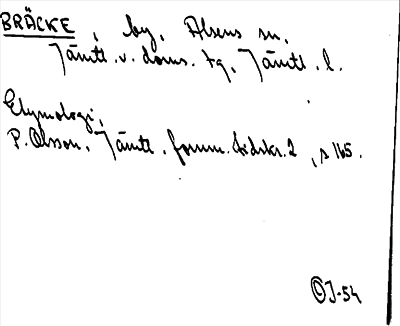 BRÄCKE, by, Alsens sn,
Jämtl. v. doms. tg, Jämtl. l.
Etymologi,
P. Olsson, Jämtl. fornm. tidskr. 2, s 165.
OJ-54